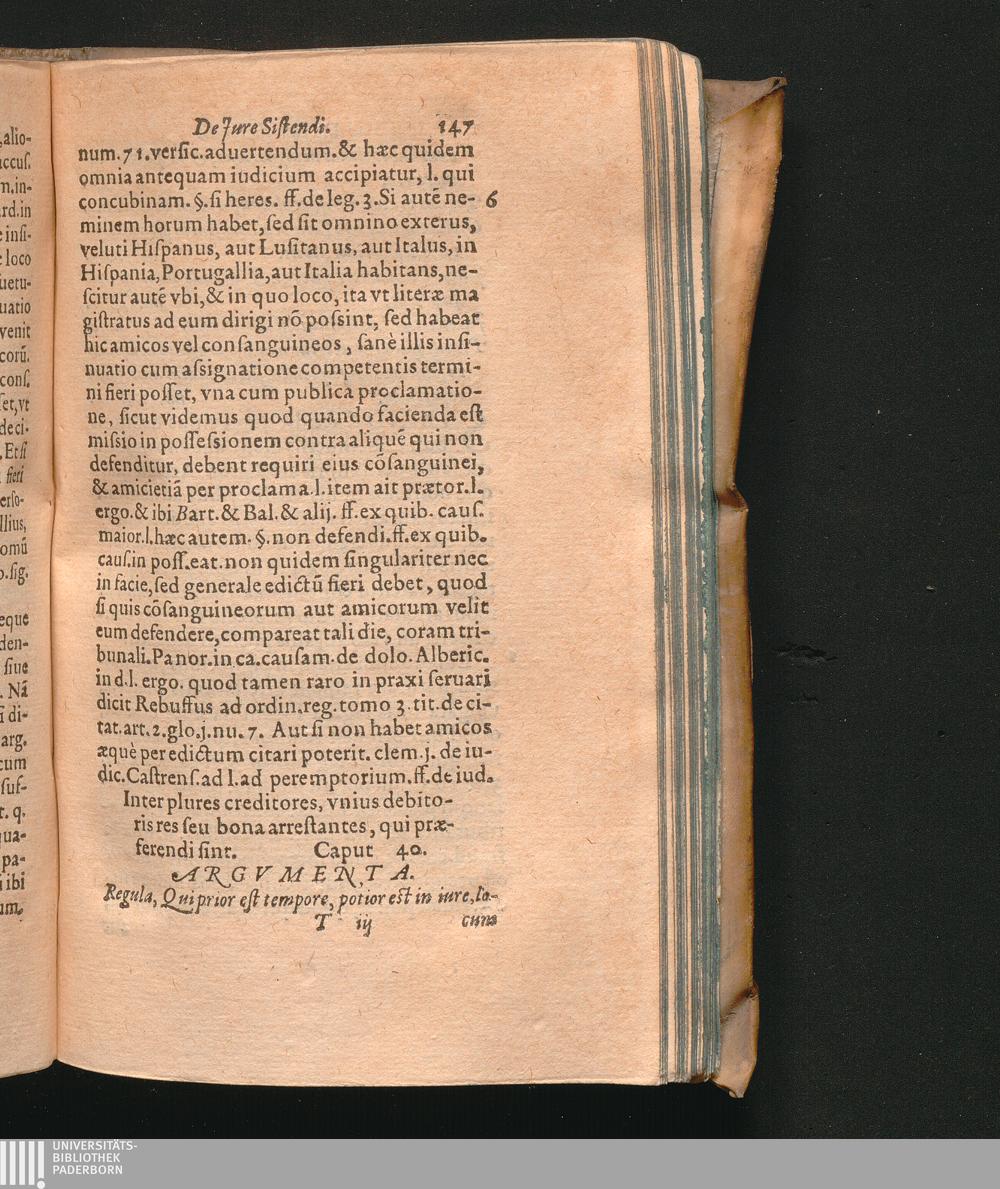 De Jure Siſtendi. 147
num.71.verſic.aduertendum.& hæc quidem
omnia antequam iudicium accipiatur, l. qui
concubinam. §. ſi heres. ff.de leg. 3.Si autē ne- 6
minem horum habet, ſed ſit omnino exterus,
veluti Hiſpanus, aut Luſitanus, aut Italus, in
Hiſpania, Portugallia, aut Italia habitans, ne-
ſcitur autē vbi, & in quo loco, ita vt literæ ma
giſtratus ad eum dirigi nō poſsint, ſed habeat
hic amicos vel conſanguineos, ſanè illis inſi-
nuatio cum aſsignatione competentis termi-
ni fieri poſſet, vna cum publica proclamatio-
ne, ſicut videmus quod quando facienda eſt
miſsio in poſſeſsionem contra aliquē qui non
defenditur, debent requiri eius cōſanguinei,
& amicietiā per proclama.l.item ait prætor.l.
ergo.& ibi Bart.& Bal.& alij. ff.ex quib. cauſ.
maior.l.hæc autem. §. non defendi.ff.ex quib.
cauſ.in poſſ.eat.non quidem ſingulariter nec
in facie, ſed generale edictū fieri debet, quod
ſi quis cōſanguineorum aut amicorum velit
eum defendere, compareat tali die, coram tri-
bunali.Panor.in ca.cauſam.de dolo. Alberic.
in d.l. ergo. quod tamen raro in praxi ſeruari
dicit Rebuffus ad ordin.reg.tomo 3.tit.de ci-
tat.art.2.glo.j.nu.7. Aut ſi non habet amicos
æquè per edictum citari poterit. clem.j. de iu-
dic.Caſtrenſ.ad l.ad peremptorium.ff.de iud.
Inter plures creditores, vnius debito-
ris res ſeu bona arreſtantes, qui præ-
ferendi ſint. Caput 40.
ARGVMENTA.
Regula, Qui prior eſt tempore, potior eſt in iure, lo-
T iij cum
,alio-
accuſ.
m.in-
rd.in
e inſi-
loco
uetu-
uatio
venit
corū.
conſ.
ſet,vt
de ci-
.Et ſi
fieri
erſo-
llius,
omū
o.ſig.
eque
den-
ſiue
. Nā
ſi di-
arg.
cum
ſuf-
t. q.
qua-
pa-
i ibi
um.
UNIVERSITÄTS-
BIBLIOTHEK
PADERBORN